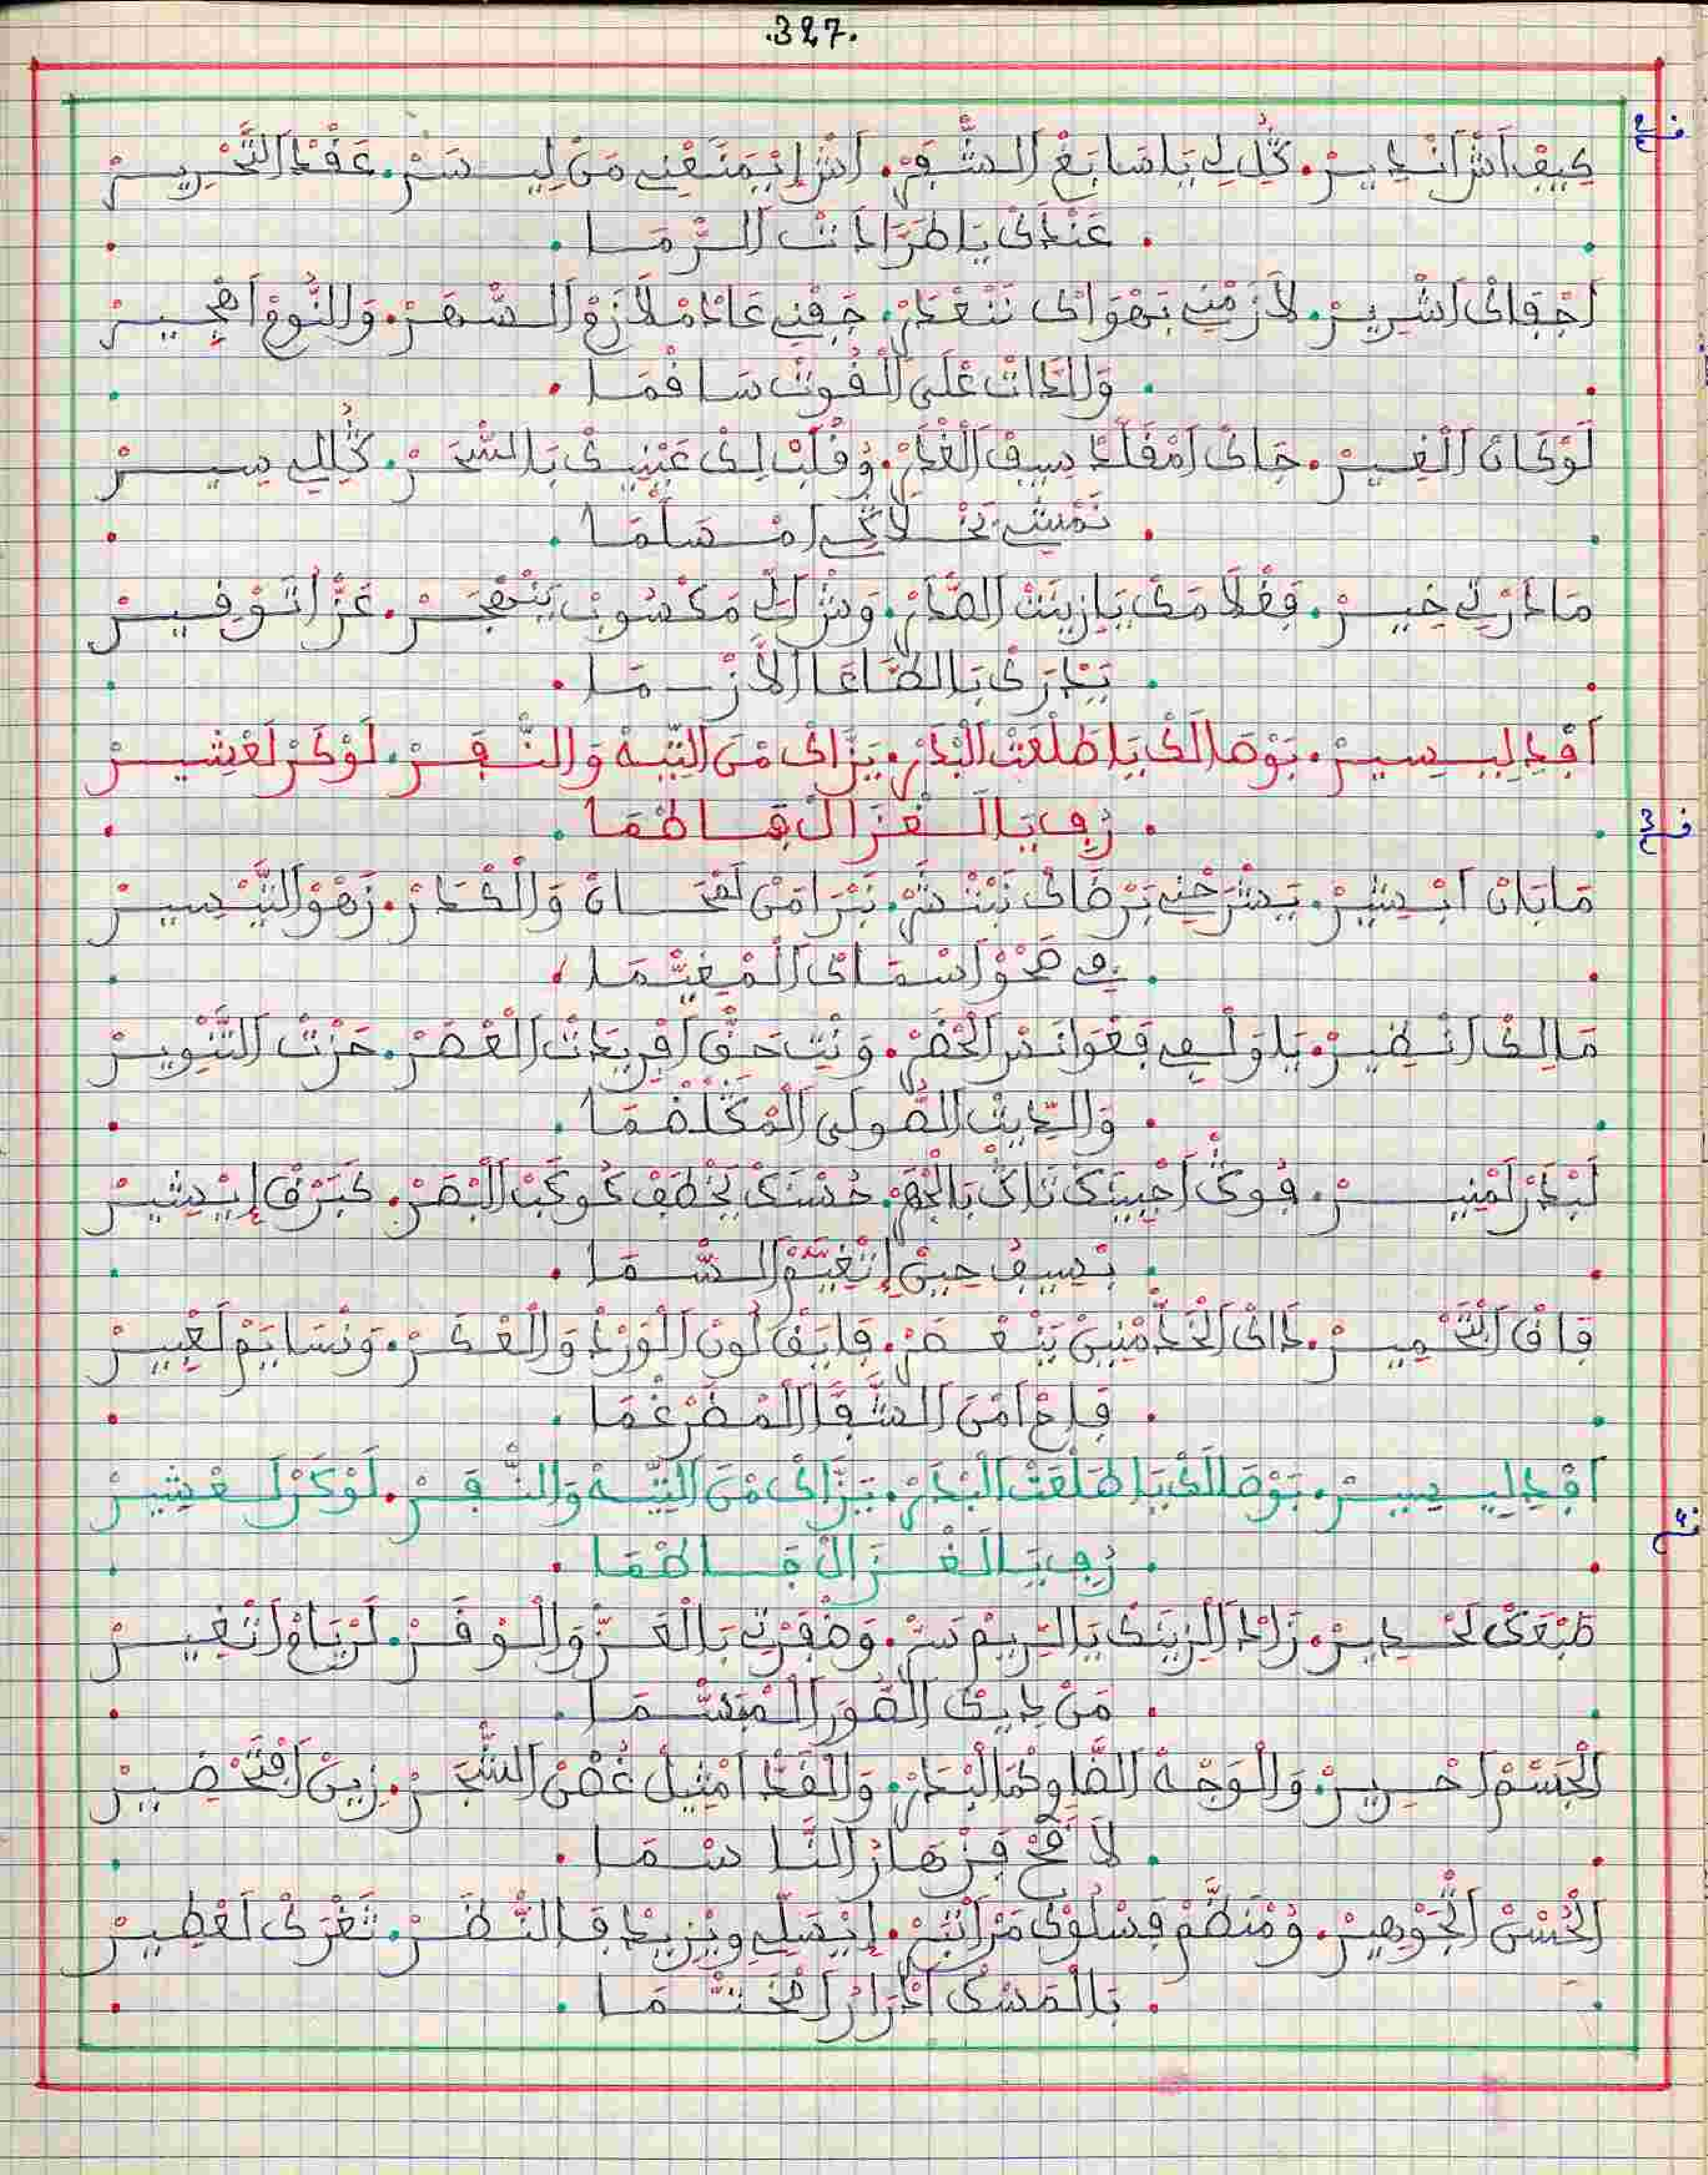 .327.
كيف اش انديرْ. كُلْ لِي يا سابغْ الشفرْ. اش ايمنعني من ليسرْ. عقد التحريرْ
. عندك يا طرادت الرما .
اجفاك اشريرْ. لازمني بهواك ننغدرْ. جفني عاد ملازم السهرْ. والنوم اهجيرْ
. والدات على الفوت سافما .
لوكان الغيرْ. جاك امقلد بسيف الغدرْ. وقلب لك عينيك بالشحرْ. كل لي سيرْ
. نمشي نخلاكي امسلما .
ما ادرتي خيرْ. فغلامك يا زينت الصدرْ. وش الّ مكسوب ينهجرْ. عز اتوفيرْ
. يدرك بالطاعا الازما .
افد ليسيرْ. بوصالك يا طلعت البدرْ. يزاك من التيه والنفرْ. لوكر لعشيرْ
. زفي يا الغزال فاطما .
ما بان ابشيرْ. يشرحني برضاك نبتشرْ. نبرا من لمحان والكدرْ. زهو التيسيرْ
. في صحو اسماك المغيما .
مالك انظيرْ. يا ولفي فغوانس الحضرْ. ونت حق افريدت العصرْ. حزت التنويرْ
. والديت الصولى المكلفما .
لبدر لمنيرْ. فوق اجبينك تاك بالجهرْ. حسنك يخطف كوكب البصرْ. كبرق ايشيرْ
. بسيف حين اتغيم السما .
فاق التخميرْ. داك الخد منين ينعصرْ. فايق لون الورد والعكرْ. ونسايم لعبيرْ
. فاح من الشفا المضرغما .
افد ليسيرْ. بوصالك يا طلعت البدرْ. يزاك من التيه والنفرْ. لوكر لعشيرْ
. زفي يا الغزال فاطما .
طبعك لحديرْ. زاد الزينك يا الريم سرْ. وضفرتي بالعز والوفرْ. لرياح اتغيرْ
. من ديك الصور المبسما .
الجسم احريرْ. والوجه الضاوي كما البدرْ. والقد امثيل غصن الشجرْ. زين افتحضيرْ
. لاقح فزهار الناسما .
الحسن الجوهيرْ. ومنظم فسلوك مر انتبرْ. ايصلي ويزيد فالنظرْ. ثغرك لعطيرْ
. بالمسك ادرار امختما .